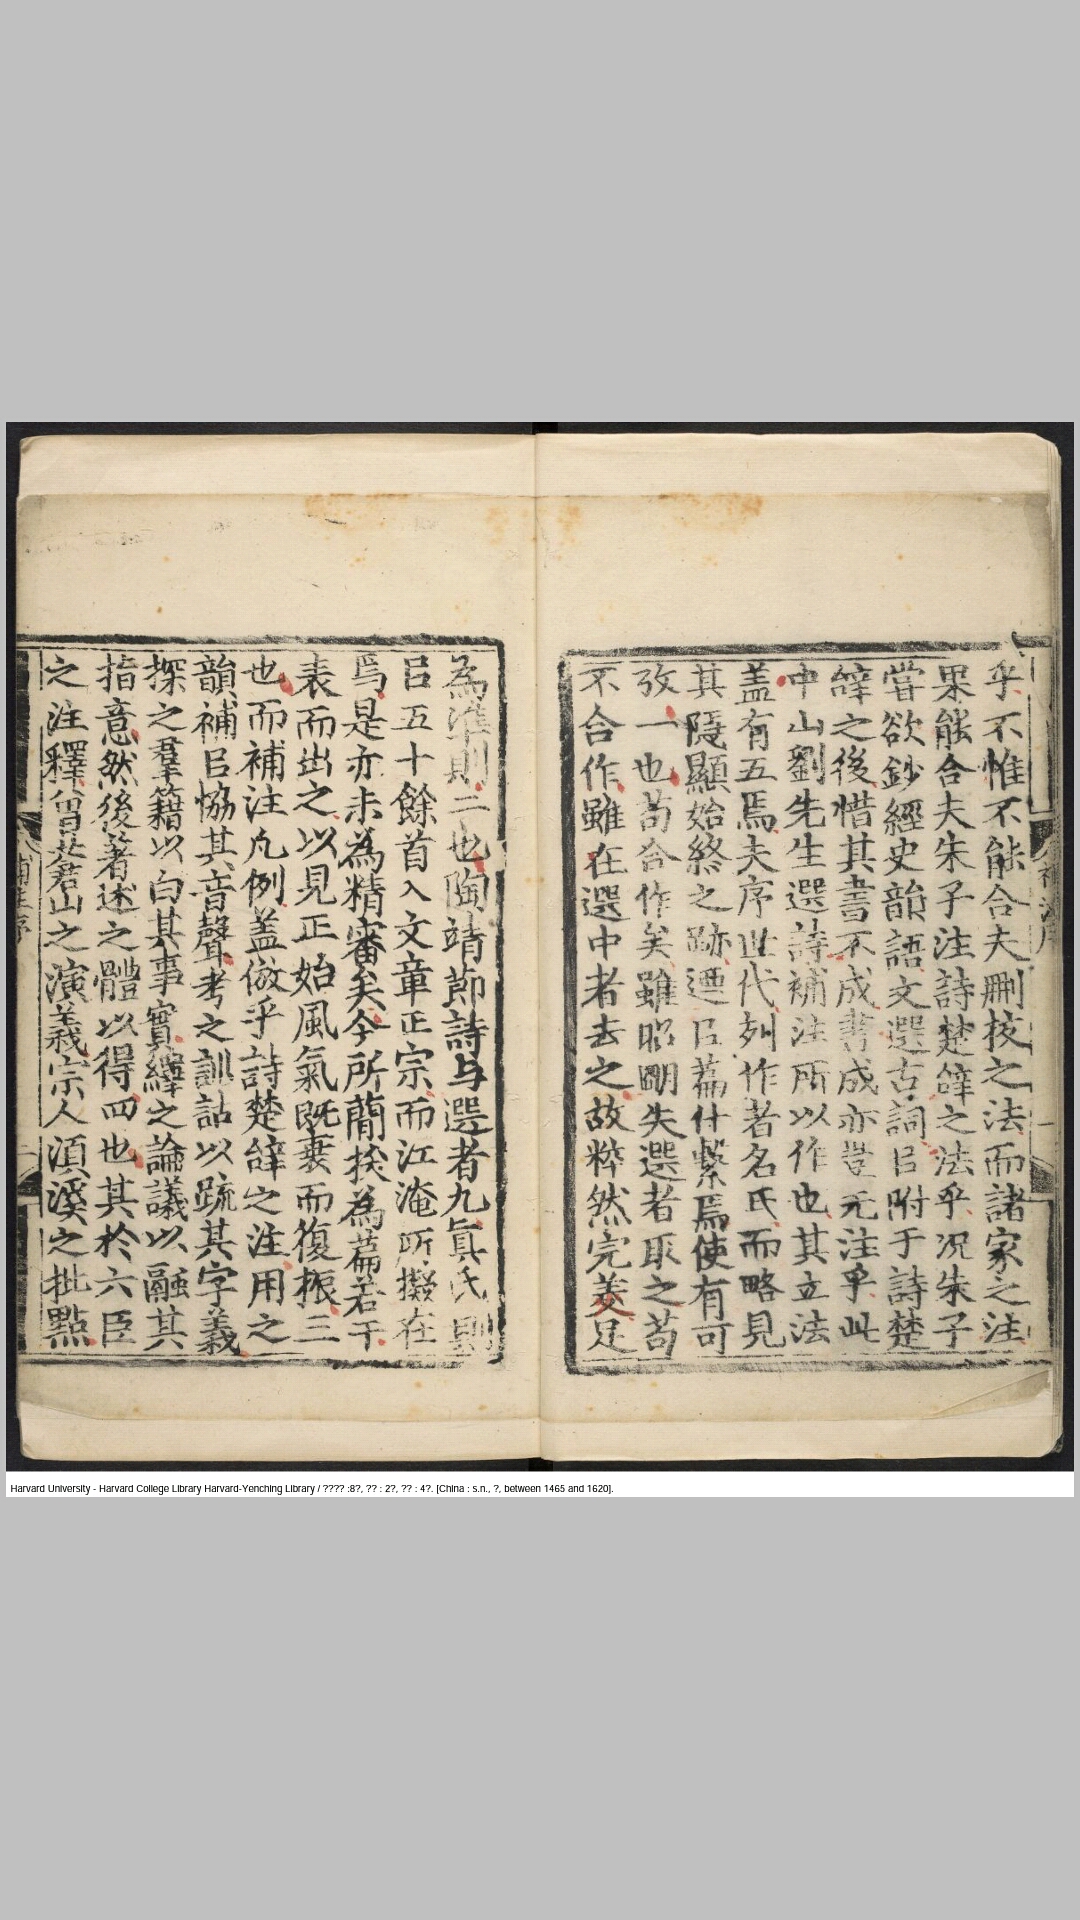 乎不惟不能合夫刪校之法而諸家之注
果能合夫朱子注詩楚辭之法乎况朱子
嘗欲鈔經史韻語文選古詞㠯附于詩楚
辭之後惜其書不成書成亦豈无注乎此
中山劉先生選詩補注所以作也其立法
盖有五焉夫序世代列作者名氏而略見
其隱顯始終之跡迺㠯篇什繫焉使有可
攷一也苟合作矣雖昭明失選者取之苟
不合作雖在選中者去之故粹然完美足
為準則二也陶靖節詩与選者九眞氏則
㠯五十餘首入文章正宗而江淹所擬在
焉是亦未為精審矣今所蕳㧡為篇若干
表而出之以見正始風氣既衰而復振三
也而補注凡例盖倣乎詩楚辭之注用之
韻補㠯恊其音聲考之訓詁以疏其字義
探之羣籍以白其事實繹之論議以融其
指意然後著述之體以得四也其於六臣
之注釋曾蒼山之演義宗人湏溪之批點
補注序
Harvard University - Harvard College Library Harvard-Yenching Library / ???? :8?, ?? : 2?, ?? : 4?. [China : s.n., ?, between 1465 and 1620].